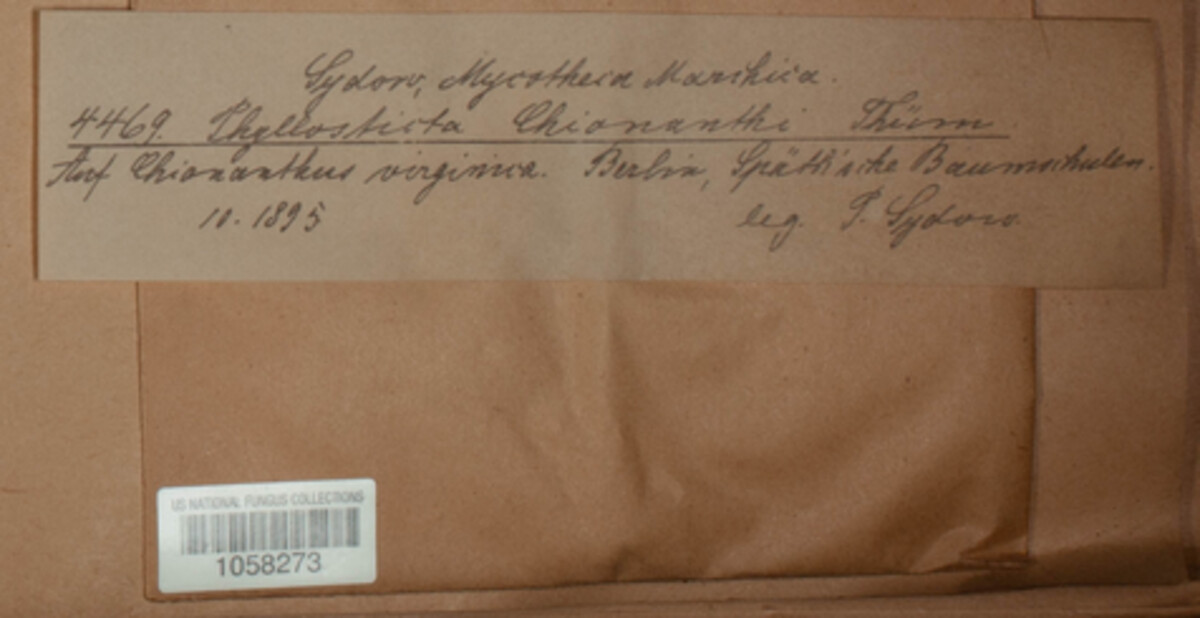 Sydow, Mycotheca Marchica.
4469. Phyllosticta Chionanthi Thüm.
Auf Chionanthus virginica. Berlin, Späth'sche Baumschulen.
10. 1895 leg. P. Sydow.
US NATIONAL FUNGUS COLLECTIONS
1058273